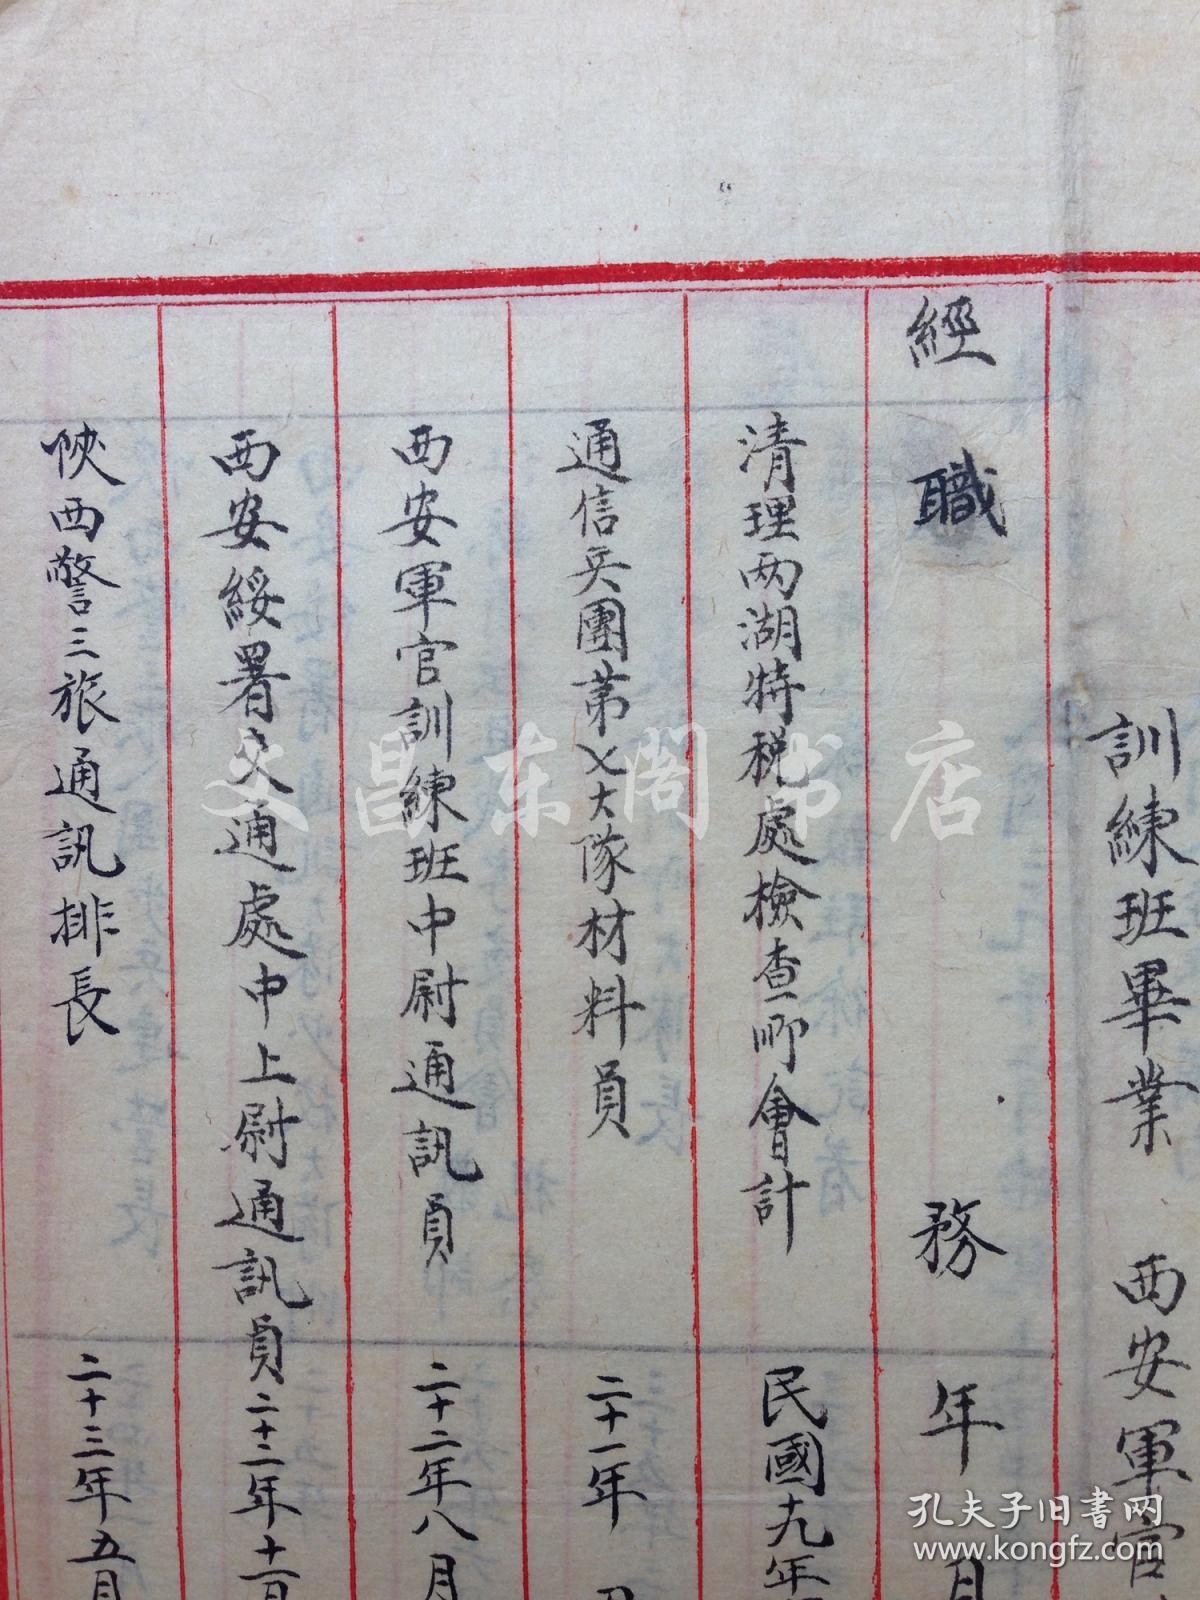 訓練班畢業 西安軍官
經 職 務 年 月
清理两湖特税處檢查所會計 民國十九年
通信兵團第乂大隊材料員 二十一年
西安軍官訓練班中尉通訊員 二十二年八月
西安綏署交通處中上尉通訊員 二十二年十二月
陝西警三旅通訊排長 二十三年五月
文昌东阁书店
孔夫子旧书网
www.kongfz.com